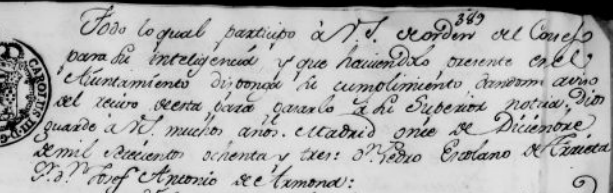 389
Todo lo qual participo à V.S. de orden del Consejo
para su inteligencia y que haciendolo presente en el
Ayuntamiento disponga su cumplimiento dandome aviso
del recivo de esta para pasarlo a su Superior noticia. Dios
guarde à V.S. muchos años. Madrid once de Diciembre
de mil setecientos ochenta y tres: Dn. Pedro Escolano de Arrieta
Sr. Dn. Josef Antonio de Armona:
CAROLUS III D G